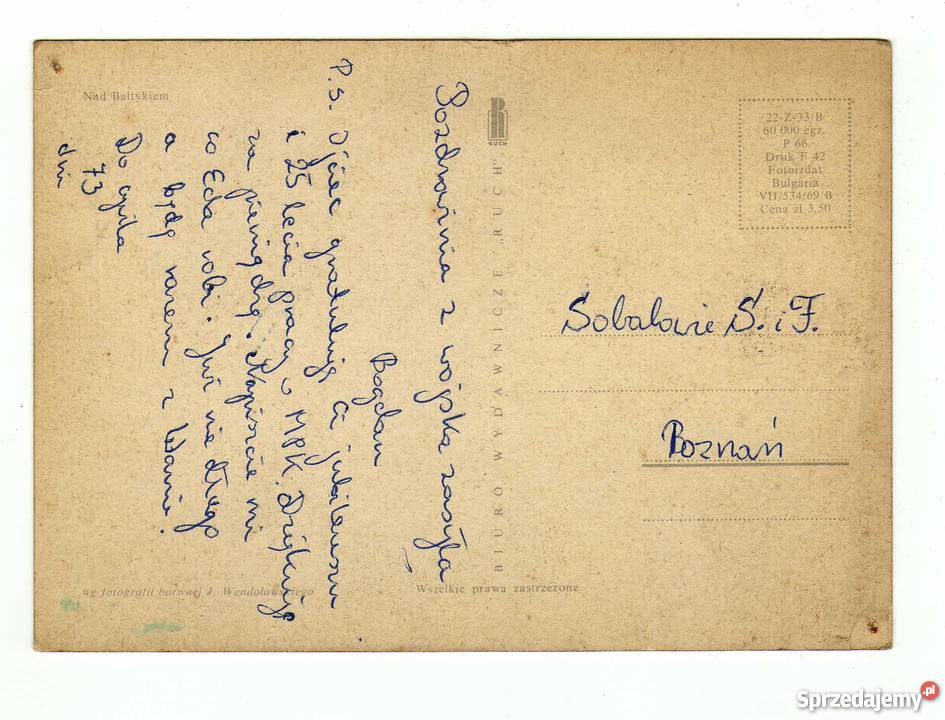 Nad Bałtykiem
Pozdrowienia z wojska zasyła
Bogdan
P.S. Ojciec gratuluję Ci jubileuszu
i 25 lecia pracy w MPK. Dziękuję
za pieniądze. Napiszcie mi
co Eda robi. Już nie długo
a będę razem z Wami.
Do cywila
73
dni
wg fotografii barwnej J. Wendołowskiego
RUCH
BIURO WYDAWNICZE „RUCH”
Wszelkie prawa zastrzeżone
22-Z-33/B
60 000 egz.
P 66
Druk F 42
Fotoizdat
Bulgaria
VII/534/69/B
Cena zł 3,50
S. i F.
Poznań
Sprzedajemy.pl